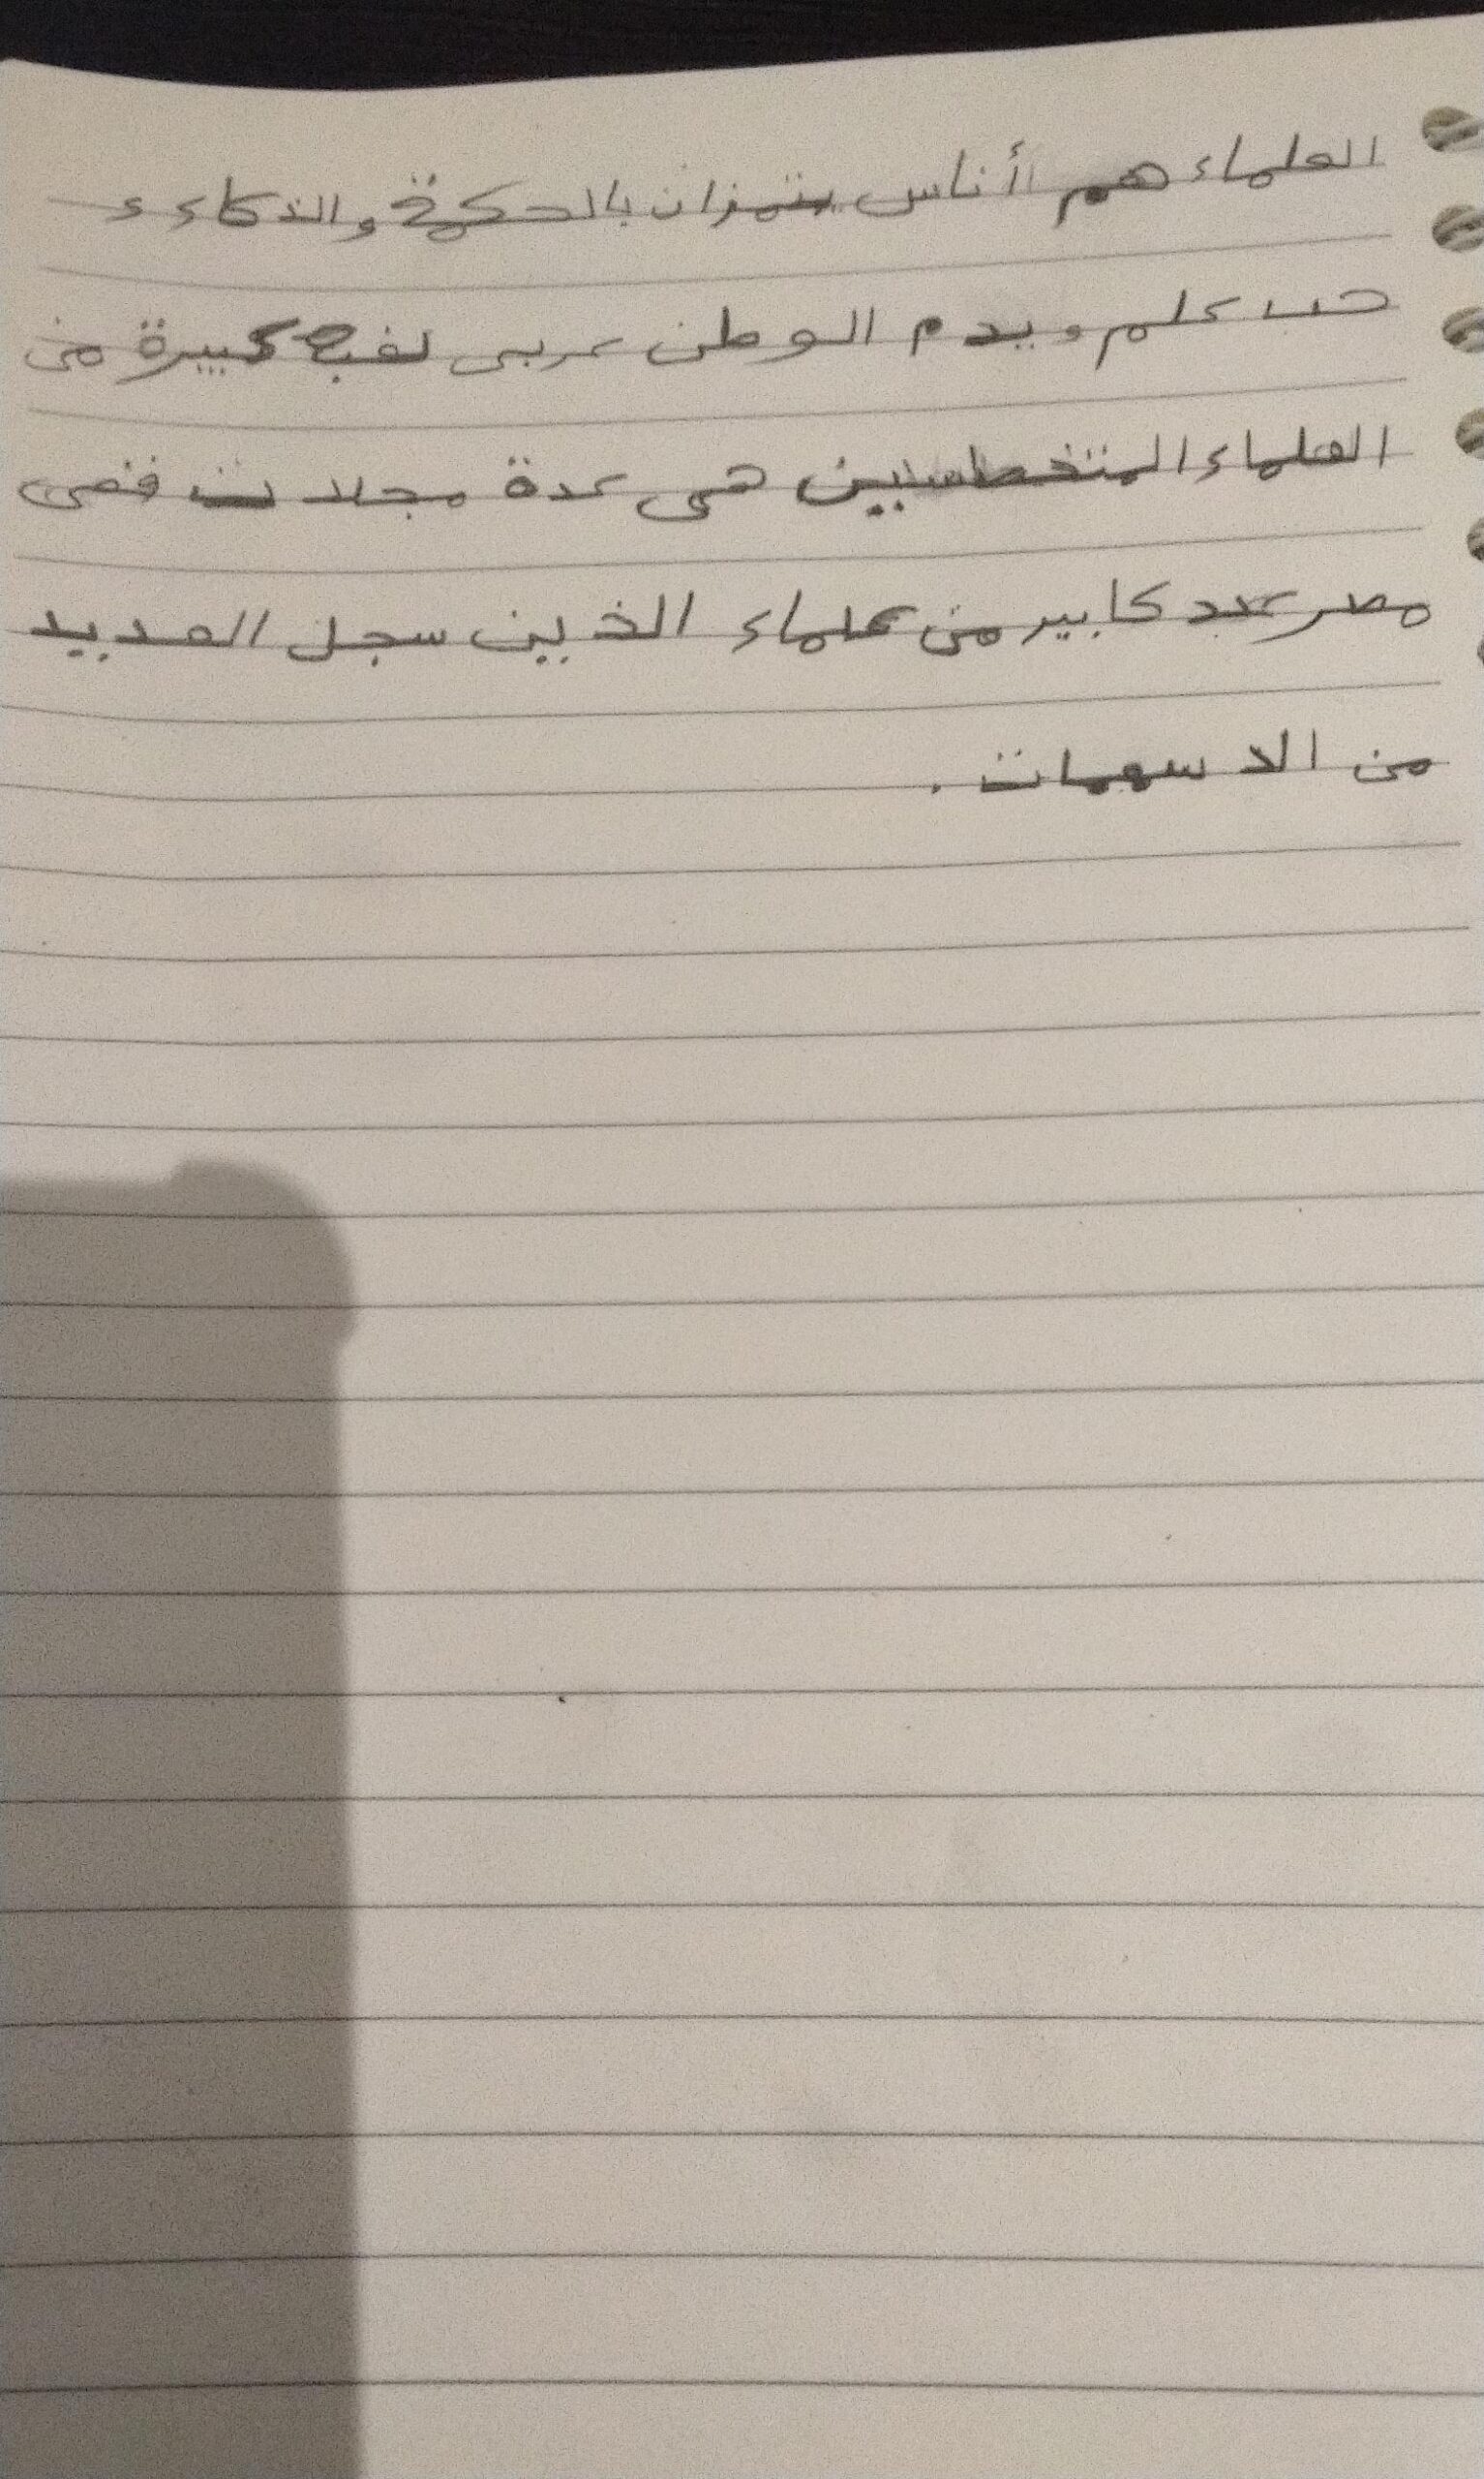 العلماء هم أناس يتمزان بالحكمة والذكاء ء
حب علم ويدم الوطن عربى كبيرة من
العلماء المتخطاسبين هى عدة مجلات ففى
مصر عدد كابير من علماء الذيين سجل العديد
من الاسهمات .